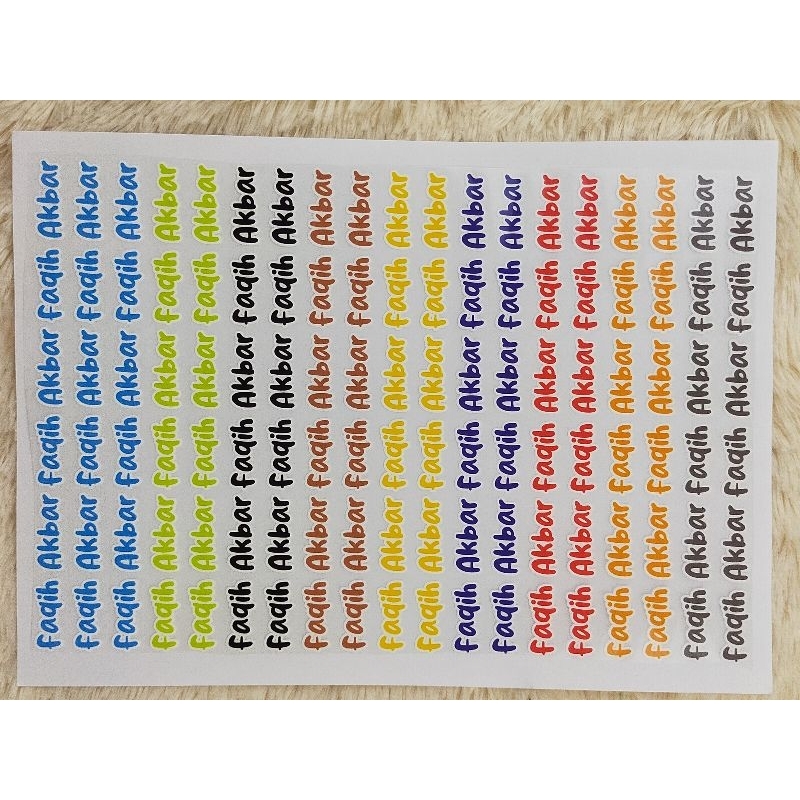 Faqih Akbar Faqih Akbar Faqih Akbar
Faqih Akbar Faqih Akbar Faqih Akbar
Faqih Akbar Faqih Akbar Faqih Akbar
Faqih Akbar Faqih Akbar Faqih Akbar
Faqih Akbar Faqih Akbar Faqih Akbar
Faqih Akbar Faqih Akbar Faqih Akbar
Faqih Akbar Faqih Akbar Faqih Akbar
Faqih Akbar Faqih Akbar Faqih Akbar
Faqih Akbar Faqih Akbar Faqih Akbar
Faqih Akbar Faqih Akbar Faqih Akbar
Faqih Akbar Faqih Akbar Faqih Akbar
Faqih Akbar Faqih Akbar Faqih Akbar
Faqih Akbar Faqih Akbar Faqih Akbar
Faqih Akbar Faqih Akbar Faqih Akbar
Faqih Akbar Faqih Akbar Faqih Akbar
Faqih Akbar Faqih Akbar Faqih Akbar
Faqih Akbar Faqih Akbar Faqih Akbar
Faqih Akbar Faqih Akbar Faqih Akbar
Faqih Akbar Faqih Akbar Faqih Akbar